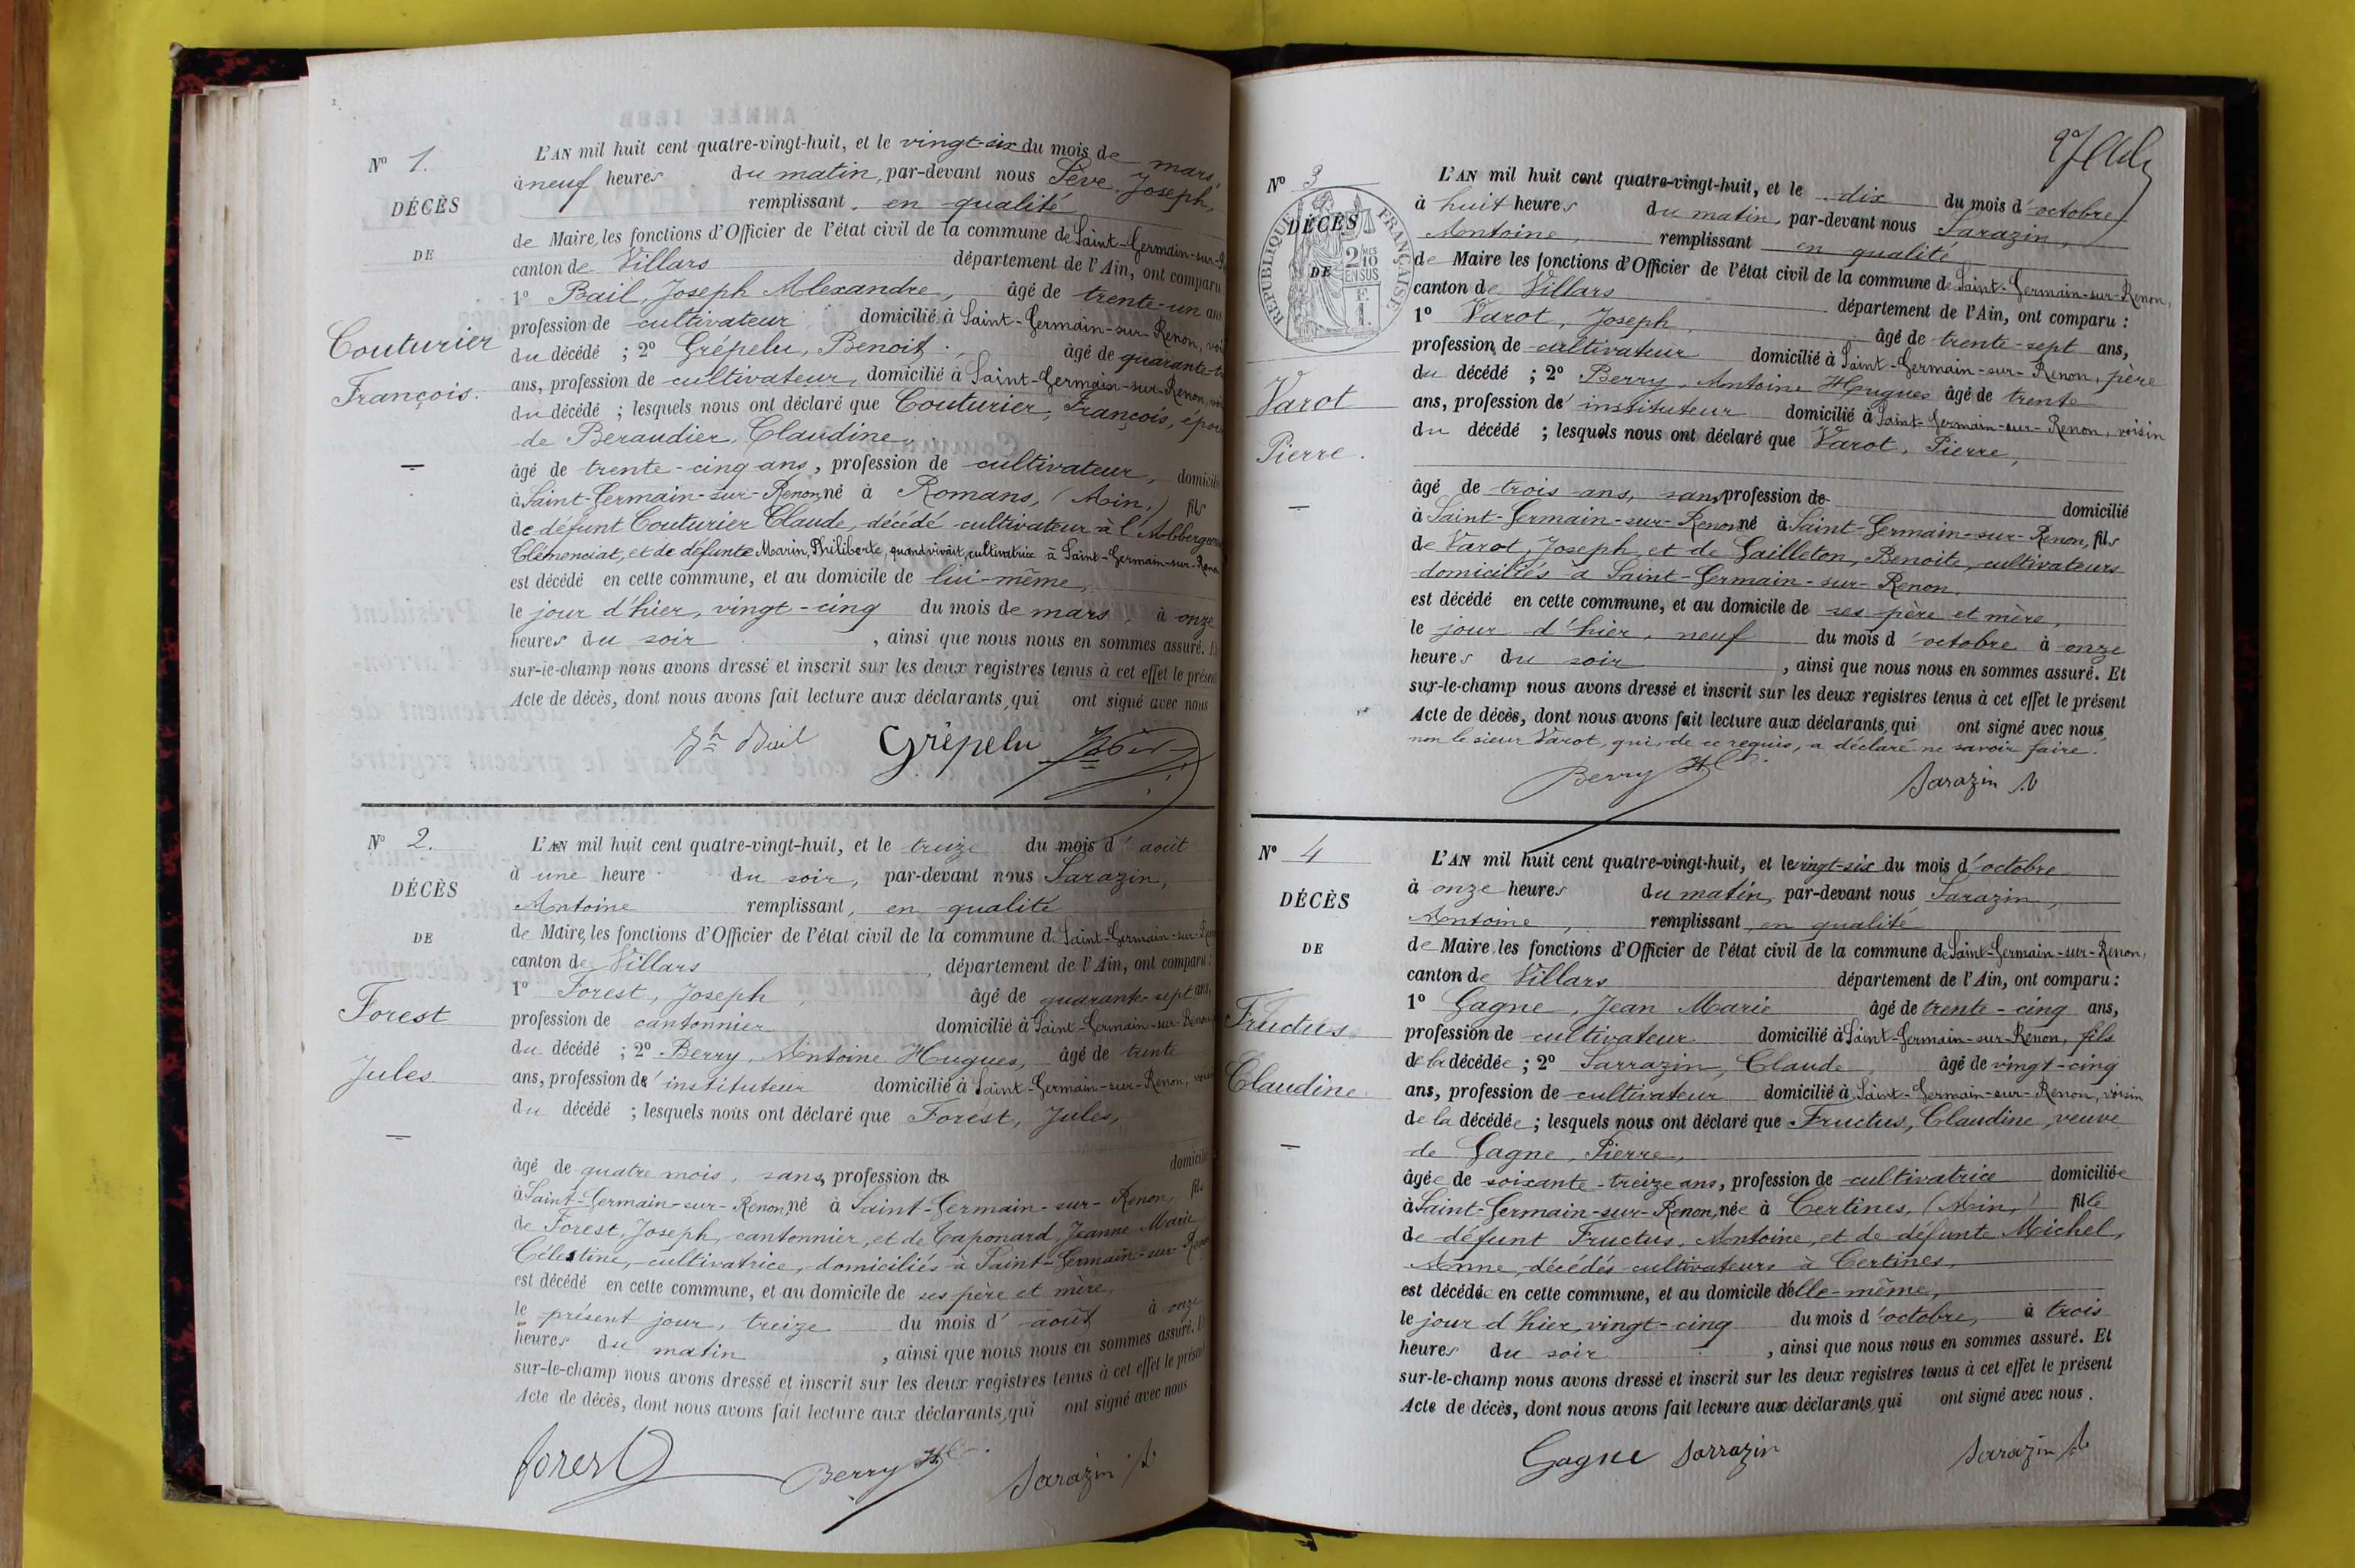 N° 1.
DÉCÈS
DE
Couturier
François.
L'AN mil huit cent quatre-vingt-huit, et le vingt-six du mois de mars,
à neuf heures du matin, par-devant nous Sève, Joseph,
remplissant, en qualité
de Maire, les fonctions d'Officier de l'état civil de la commune de Saint-Germain-sur-
canton de Villars département de l'Ain, ont comparu
1° Bail, Joseph Alexandre, âgé de trente-un ans
profession de cultivateur domicilié à Saint-Germain-sur-Renon,
du décédé ; 2° Grépelu, Benoit, âgé de quarante-
ans, profession de cultivateur, domicilié à Saint-Germain-sur-Renon,
du décédé ; lesquels nous ont déclaré que Couturier, François,
de Beraudier, Claudine,
âgé de trente-cinq ans, profession de cultivateur,
à Saint-Germain-sur-Renon, né à Romans, (Ain,) fils
de défunt Couturier Claude, décédé cultivateur à
Clémenciat, et de défunte Marin, Philiberte, quand vivait, cultivatrice à Saint-Germain-sur-Renon
est décédé en cette commune, et au domicile de lui-même,
le jour d'hier, vingt-cinq du mois de mars, à onze
heures du soir, ainsi que nous nous en sommes assuré.
sur-le-champ nous avons dressé et inscrit sur les deux registres tenus à cet effet le présent
Acte de décès, dont nous avons fait lecture aux déclarants, qui ont signé avec nous
Grépelu
N° 2.
DÉCÈS
DE
Forest
Jules
L'AN mil huit cent quatre-vingt-huit, et le treize du mois d'août
à une heure du soir, par-devant nous Sarazin,
Antoine remplissant, en qualité
de Maire, les fonctions d'Officier de l'état civil de la commune d. Saint-Germain-sur-
canton de Villars, département de l'Ain, ont comparu :
1° Forest, Joseph, âgé de quarante-sept ans,
profession de cantonnier domicilié à Saint-Germain-sur-Renon
du décédé ; 2° Berry, Antoine Hugues, âgé de trente
ans, profession d'instituteur domicilié à Saint-Germain-sur-Renon,
du décédé ; lesquels nous ont déclaré que Forest, Jules,
âgé de quatre mois, sans profession de
à Saint-Germain-sur-Renon, né à Saint-Germain-sur-Renon, fils
de Forest, Joseph, cantonnier, et de Caponard, Jeanne Marie
Célestine, cultivatrice, domiciliés à Saint-Germain-sur-
est décédé en cette commune, et au domicile de ses père et mère,
le présent jour, treize du mois d'août à onze
heures du matin, ainsi que nous nous en sommes assuré.
sur-le-champ nous avons dressé et inscrit sur les deux registres tenus à cet effet le présent
Acte de décès, dont nous avons fait lecture aux déclarants, qui ont signé avec nous
Forest Berry Sarazin A
N° 3
DÉCÈS
DE
RÉPUBLIQUE FRANÇAISE.
2 10
EN SUS
Varot
Pierre.
L'AN mil huit cent quatre-vingt-huit, et le dix du mois d'octobre
à huit heures du matin, par-devant nous Sarazin,
Antoine, remplissant en qualité
de Maire les fonctions d'Officier de l'état civil de la commune de Saint-Germain-sur-Renon,
canton de Villars département de l'Ain, ont comparu :
1° Varot, Joseph, âgé de trente-sept ans,
profession de cultivateur domicilié à Saint-Germain-sur-Renon, père
du décédé ; 2° Berry, Antoine Hugues âgé de trente
ans, profession d'instituteur domicilié à Saint-Germain-sur-Renon, voisin
du décédé ; lesquels nous ont déclaré que Varot, Pierre,
âgé de trois ans, sans profession de domicilié
à Saint-Germain-sur-Renon, né à Saint-Germain-sur-Renon, fils
de Varot, Joseph, et de Gailleton, Benoite, cultivateurs
domiciliés à Saint-Germain-sur-Renon.
est décédé en cette commune, et au domicile de ses père et mère,
le jour d'hier, neuf du mois d'octobre à onze
heures du soir, ainsi que nous nous en sommes assuré. Et
sur-le-champ nous avons dressé et inscrit sur les deux registres tenus à cet effet le présent
Acte de décès, dont nous avons fait lecture aux déclarants, qui ont signé avec nous,
non le sieur Varot, qui, de ce requis, a déclaré ne savoir faire.
Berry Sarazin A
N° 4
DÉCÈS
DE
Fructus
Claudine
L'AN mil huit cent quatre-vingt-huit, et le vingt-six du mois d'octobre
à onze heures du matin, par-devant nous Sarazin,
Antoine, remplissant en qualité
de Maire, les fonctions d'Officier de l'état civil de la commune de Saint-Germain-sur-Renon,
canton de Villars département de l'Ain, ont comparu :
1° Gagne, Jean Marie âgé de trente-cinq ans,
profession de cultivateur domicilié à Saint-Germain-sur-Renon, fils
de la décédée ; 2° Sarrazin, Claude, âgé de vingt-cinq
ans, profession de cultivateur domicilié à Saint-Germain-sur-Renon, voisin
de la décédée ; lesquels nous ont déclaré que Fructus, Claudine, veuve
de Gagne, Pierre,
âgée de soixante-treize ans, profession de cultivatrice domiciliée
à Saint-Germain-sur-Renon, née à Certines, (Ain,) fille
de défunt Fructus, Antoine, et de défunte Michel,
Anne, décédés cultivateurs à Certines,
est décédée en cette commune, et au domicile d'elle-même,
le jour d'hier, vingt-cinq du mois d'octobre, à trois
heures du soir, ainsi que nous nous en sommes assuré. Et
sur-le-champ nous avons dressé et inscrit sur les deux registres tenus à cet effet le présent
Acte de décès, dont nous avons fait lecture aux déclarants, qui ont signé avec nous.
Gagne Sarrazin Sarazin A